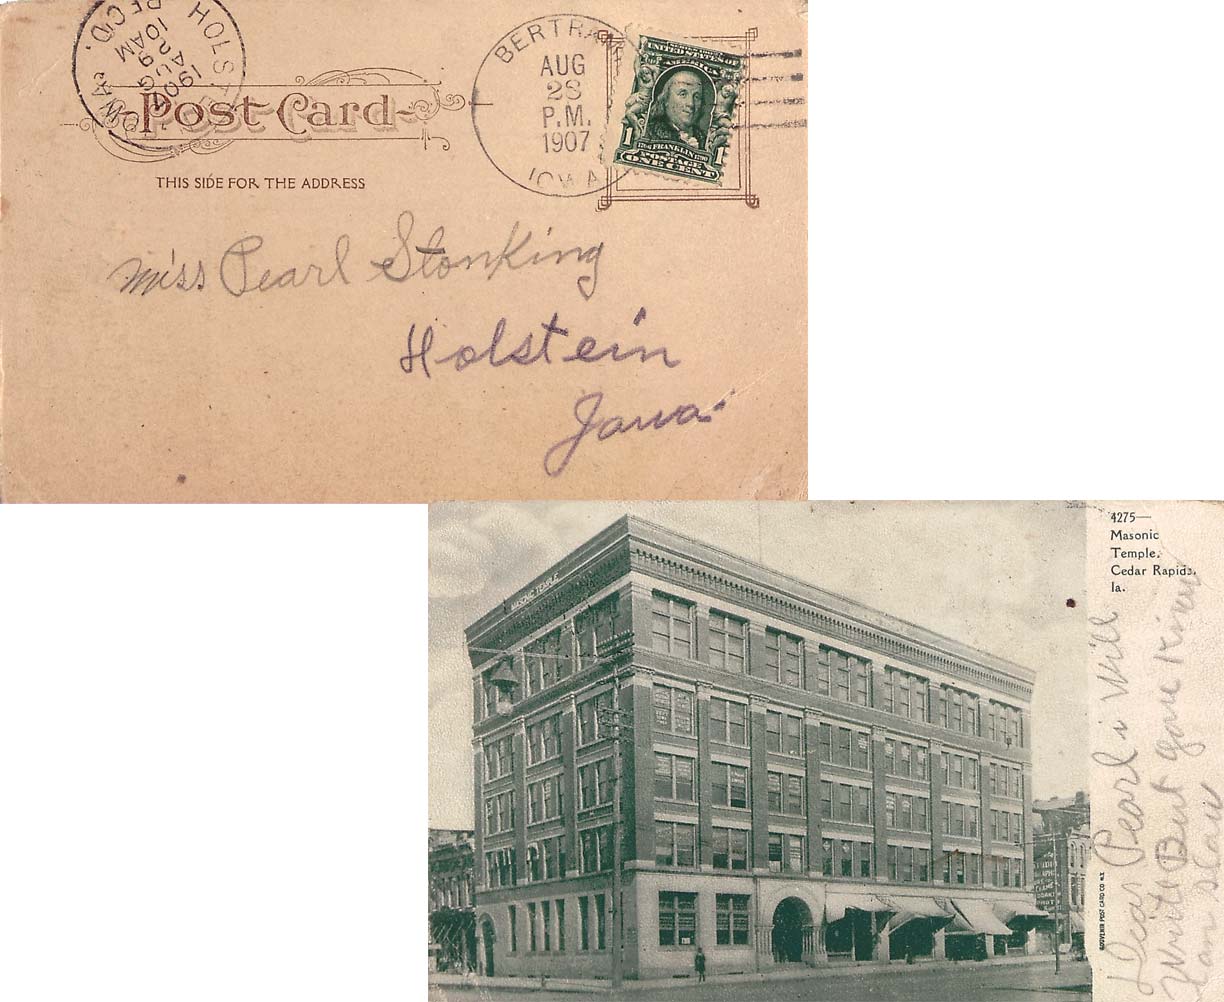 HOLST
IOWA
REC'D.
10AM
AUG
1907
Post Card
THIS SIDE FOR THE ADDRESS
BERTRAM
AUG
28
P.M.
1907
IOWA
SERIES 1902
UNITED STATES OF
AMERICA
1 1
FRANKLIN
POSTAGE
ONE CENT
Miss Pearl Stonking
Holstein
Iowa
MASONIC TEMPLE
4275—
Masonic
Temple.
Cedar Rapids.
Ia.
SOUVENIR POST CARD CO N.Y.
Dear Pearl i Will
Write But